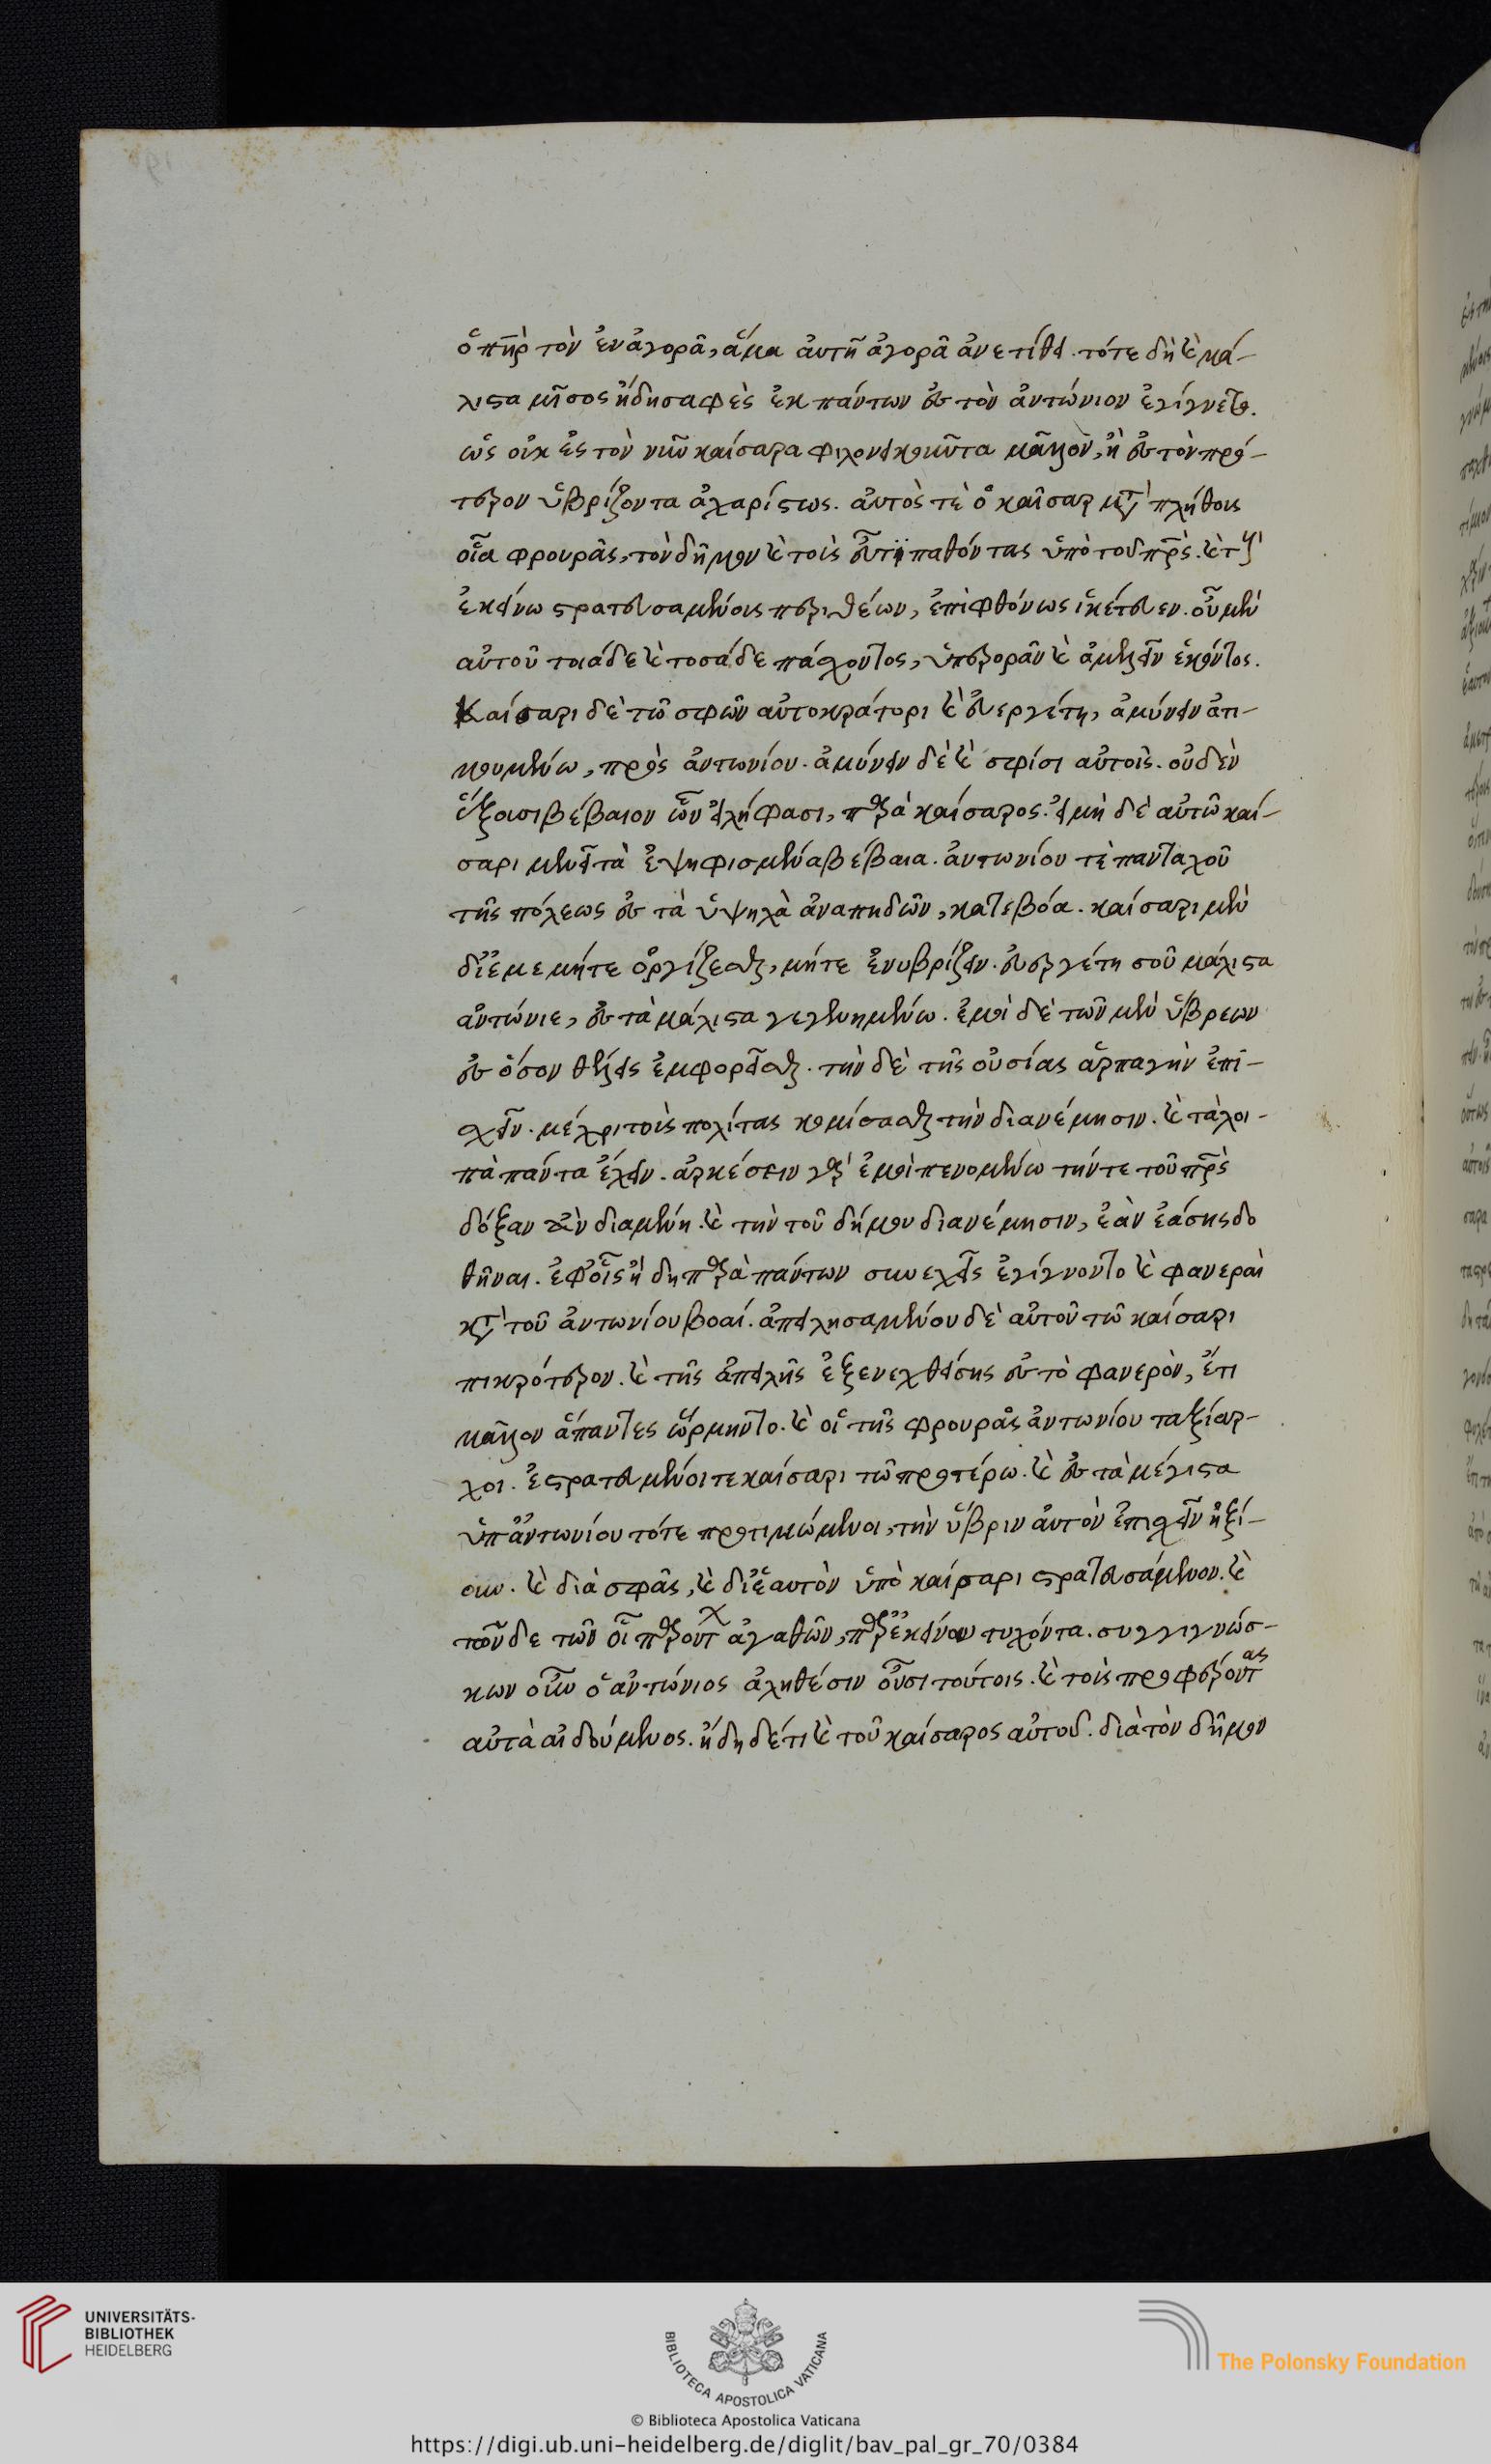 ὁ πατὴρ τὸν ἐν ἀγορᾶ, ἅμα αὐτῆ ἀγορᾶ ἀνετίθει. τότε δὴ καὶ μά-
λιστα μῖσος ἤδη σαφὲς ἐκ πάντων ἐς τὸν ἀντώνιον ἐγίγνετο.
ὡς οὐκ ἐς τὸν νῦν καίσαρα φιλονεικοῦντα μᾶλλον, ἢ ἐς τὸν πρό-
τερον ὑβρίζοντα ἀχαρίστως. αὐτὸς τὲ ὁ καῖσαρ μετὰ πλήθους
οἷα φρουρᾶς, τὸν δῆμον καὶ τοὺς εὖ τι παθόντας ὑπὸ τοῦ πατρὸς. καὶ τοὺς
ἐκείνω στρατευσαμένους περιθέων, ἐπιφθόνως ἱκέτευεν. οὗ μὲν
αὐτοῦ τοιάδε καὶ τοσάδε πάσχοντος, ὑπερορᾶν καὶ ἀμελεῖν ἑκόντος.
Καίσαρι δὲ τῶ σφῶν αὐτοκράτορι καὶ εὐεργέτη, ἀμύνειν ἀτι-
μουμένω, πρὸς ἀντωνίου. ἀμύνειν δὲ καὶ σφίσι αὐτοῖς. οὐδὲν
ἕξουσι βέβαιον ὧν εἰλήφασι, παρὰ καίσαρος. εἰ μὴ δὲ αὐτῶ καί-
σαρι μενεῖ τὰ ἐψηφισμένα βέβαια. ἀντωνίου τὲ πανταχοῦ
τῆς πόλεως ἐς τὰ ὑψηλὰ ἀναπηδῶν, κατεβόα. καίσαρι μὲν
δι' ἐμὲ μήτε ὀργίζεσθαι, μήτε ἐνυβρίζειν. εὐεργέτη σοῦ μάλιστα
ἀντώνιε, ἐς τὰ μάλιστα γεγενημένω. ἐμοὶ δὲ τῶν μὲν ὕβρεων
ἐς ὅσον θέλεις ἐμφορεῖσθαι. τὴν δὲ τῆς οὐσίας ἁρπαγὴν ἐπί-
σχειν. μέχρι τοὺς πολίτας κομίσασθαι τὴν διανέμησιν. καὶ τὰ λοι-
πὰ πάντα ἔχειν. ἀρκέσειν γὰρ ἐμοὶ πενομένω τήν τε τοῦ πατρὸς
δόξαν ἂν διαμένη. καὶ τὴν τοῦ δήμου διανέμησιν, ἐὰν ἐάσης δο
θῆναι. ἐφ' οἷς ἤδη παρὰ πάντων συνεχεῖς ἐγίγνοντο καὶ φανεραὶ
κατὰ τοῦ ἀντωνίου βοαί. ἀπειλησαμένου δὲ αὐτοῦ τῶ καίσαρι
πικρότερον. καὶ τῆς ἀπειλῆς ἐξενεχθείσης ἐς τὸ φανερὸν, ἔτι
μᾶλλον ἅπαντες ὥρμηντο. καὶ οἱ τῆς φρουρᾶς ἀντωνίου ταξίαρ-
χοι. ἐστρατευμένοι τε καίσαρι τῶ προτέρω. καὶ ἐς τὰ μέγιστα
ὑπ' ἀντωνίου τότε προτιμώμενοι, τὴν ὕβριν αὐτὸν ἐπισχεῖν ἠξί-
ουν. καὶ διὰ σφᾶς, καὶ δι' ἑαυτὸν ὑπὸ καίσαρι στρατευσάμενον. καὶ
τῶνδε τῶν οἱ παρόντων ἀγαθῶν, παρ' ἐκείνου τυχόντα. συγγιγνώσ-
κων οὖν ὁ ἀντώνιος ἀληθέσιν οὖσι τούτοις. καὶ τοὺς προφέροντας
αὐτὰ αἰδούμενος. ἤδη δέ τι καὶ τοῦ καίσαρος αὐτοῦ. διὰ τὸν δῆμον
UNIVERSITÄTS-
BIBLIOTHEK
HEIDELBERG
BIBLIOTECA APOSTOLICA VATICANA
The Polonsky Foundation
© Biblioteca Apostolica Vaticana
https://digi.ub.uni-heidelberg.de/diglit/bav_pal_gr_70/0384